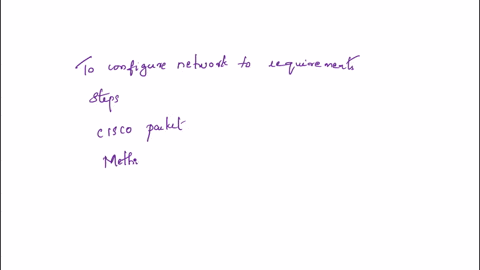 To configure network to requirements
Steps
CISCO packet
Meth